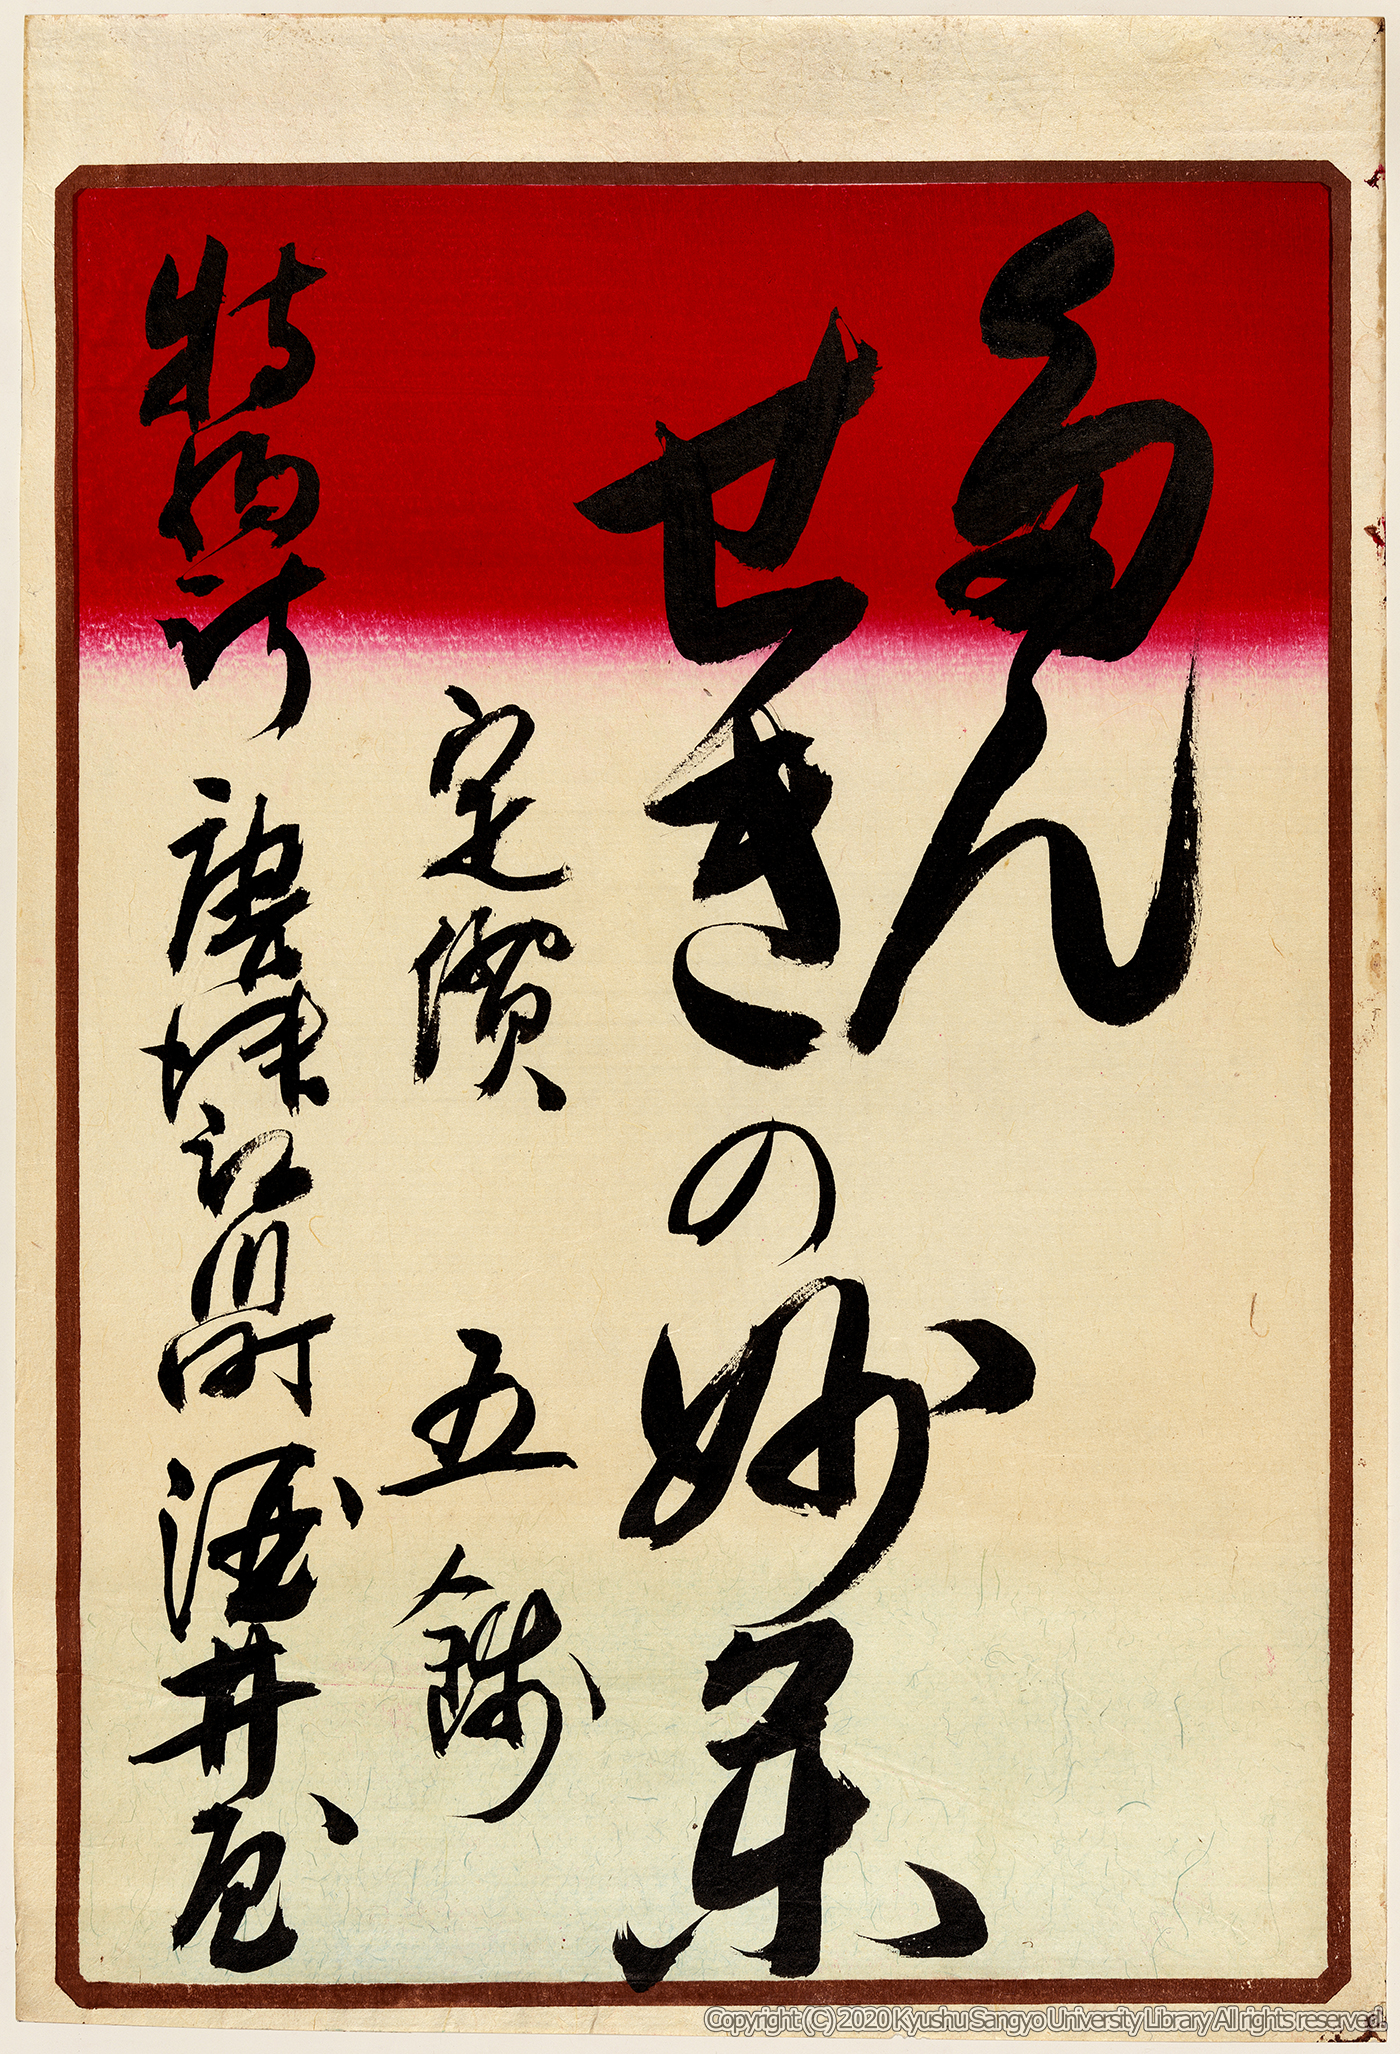 多ん
せきの妙薬
定價 五錢
特約所 唐津江川町 酒井屋
Copyright (C) 2020 Kyushu Sangyo University Library All rights reserved.